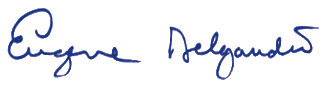 Eugene Delgaudio